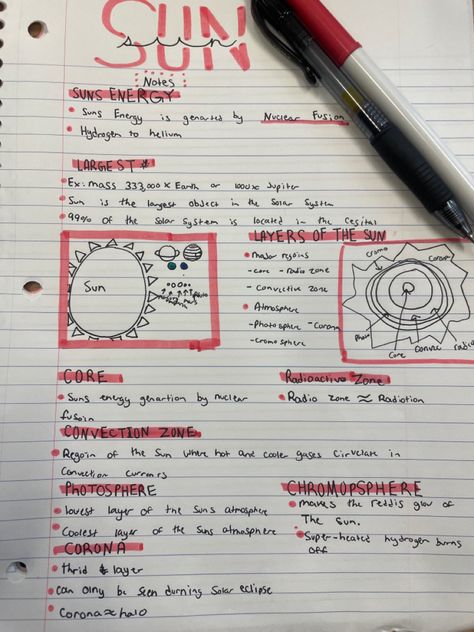 SUN
sun
Notes
SUNS ENERGY
• Suns Energy is genarted by Nuclear Fusion
• Hydrogen to helium
LARGEST *
• Ex: mass 333,000x Earth or 1000x Jupiter
• Sun is the largest object in the Solar System
• 99% of the Solar System is located in the
Sun
LAYERS OF THE SUN
• major regoins
- core - Radio zone
- Convective zone
• Atmosphere
- Photosphere - Corona
- cromosphere
Cromo
Corona
Photo
Core
Convec
radio
CORE
• Suns energy genartion by nuclear
fusoin
Radioactive Zone
• Radio zone ≈ Radiotion
CONVECTION ZONE
• Regoin of the Sun where hot and cooler gases Circulate in
Convection currents
PHOTOSPHERE
• lowest layer of the Suns atmosphere
• Coolest layer of the suns atmosphere
CHROMOPSPHERE
• makes the reddis glow of
The Sun.
• Super-heated hydrogen burns
off
CORONA
• thrid layer
• can olny be seen durning Solar eclipse
• Corona ≈ halo